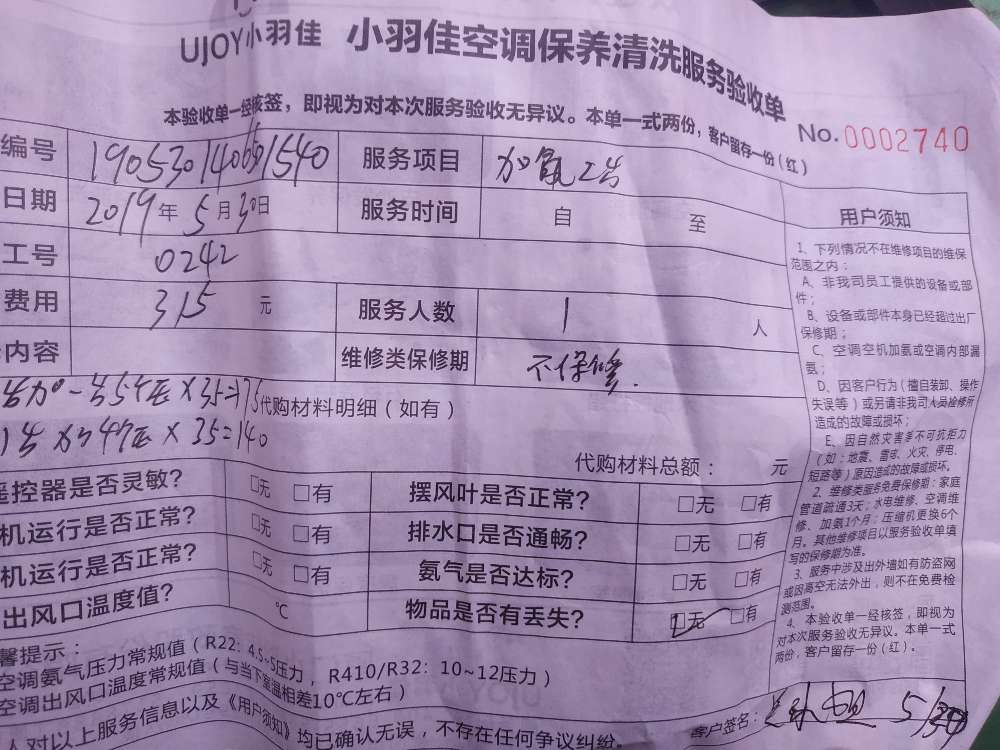 UJOY小羽佳 小羽佳空调保养清洗服务验收单
本验收单一经核签，即视为对本次服务验收无异议。本单一式两份，客户留存一份（红）
No. 0002740
编号 服务项目 加氨
日期 2019年5月30日 服务时间 自 至
工号 0242
费用 315元 服务人数 1人
内容 维修类保修期 不保修.
×35=175
代购材料明细（如有）
×35=140
代购材料总额： 元
遥控器是否灵敏? □无 □有 摆风叶是否正常? □无 □有
机运行是否正常? □无 □有 排水口是否通畅? □无 □有
机运行是否正常? □无 □有 氨气是否达标? □无 □有
出风口温度值? ℃ 物品是否有丢失? □无 □有
馨提示：
空调氨气压力常规值（R22: 4.5~5压力，R410/R32: 10~12压力）
空调出风口温度常规值（与当下室温相差10℃左右）
人对以上服务信息以及《用户须知》均已确认无误，不存在任何争议纠纷。
用户须知
1、下列情况不在维修项目的维保
范围之内：
A、非我司员工提供的设备或部
件；
B、设备或部件本身已经超过出厂
保修期；
C、空调空机加氨或空调内部漏
氨；
D、因客户行为（擅自装卸、操作
失误等）或另请非我司人员检修所
造成的故障或损坏；
E、因自然灾害多不可抗拒力
（如：地震、雷击、火灾、停电、
短路等）原因造成的故障或损坏。
2、维修类服务免费保修期：家庭
管道疏通3天；水电维修、空调维
修、加氨1个月；压缩机更换6个
月。其他维修项目以服务验收单填
写的保修期为准。
3、服务中涉及出外墙如有防盗网
或因高空无法外出，则不在免费检
测范围。
4、本验收单一经核签，即视为
对本次服务验收无异议。本单一式
两份，客户留存一份（红）。
客户签名： 5/30